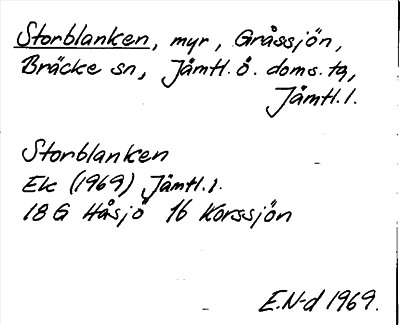 Storblanken, myr, Gråssjön,
Bräcke sn, Jämtl. ö. doms. tg,
Jämtl. l.
Storblanken
Ek (1969) Jämtl. l.
18 G Håsjö 1b Korssjön
E.N-d 1969.